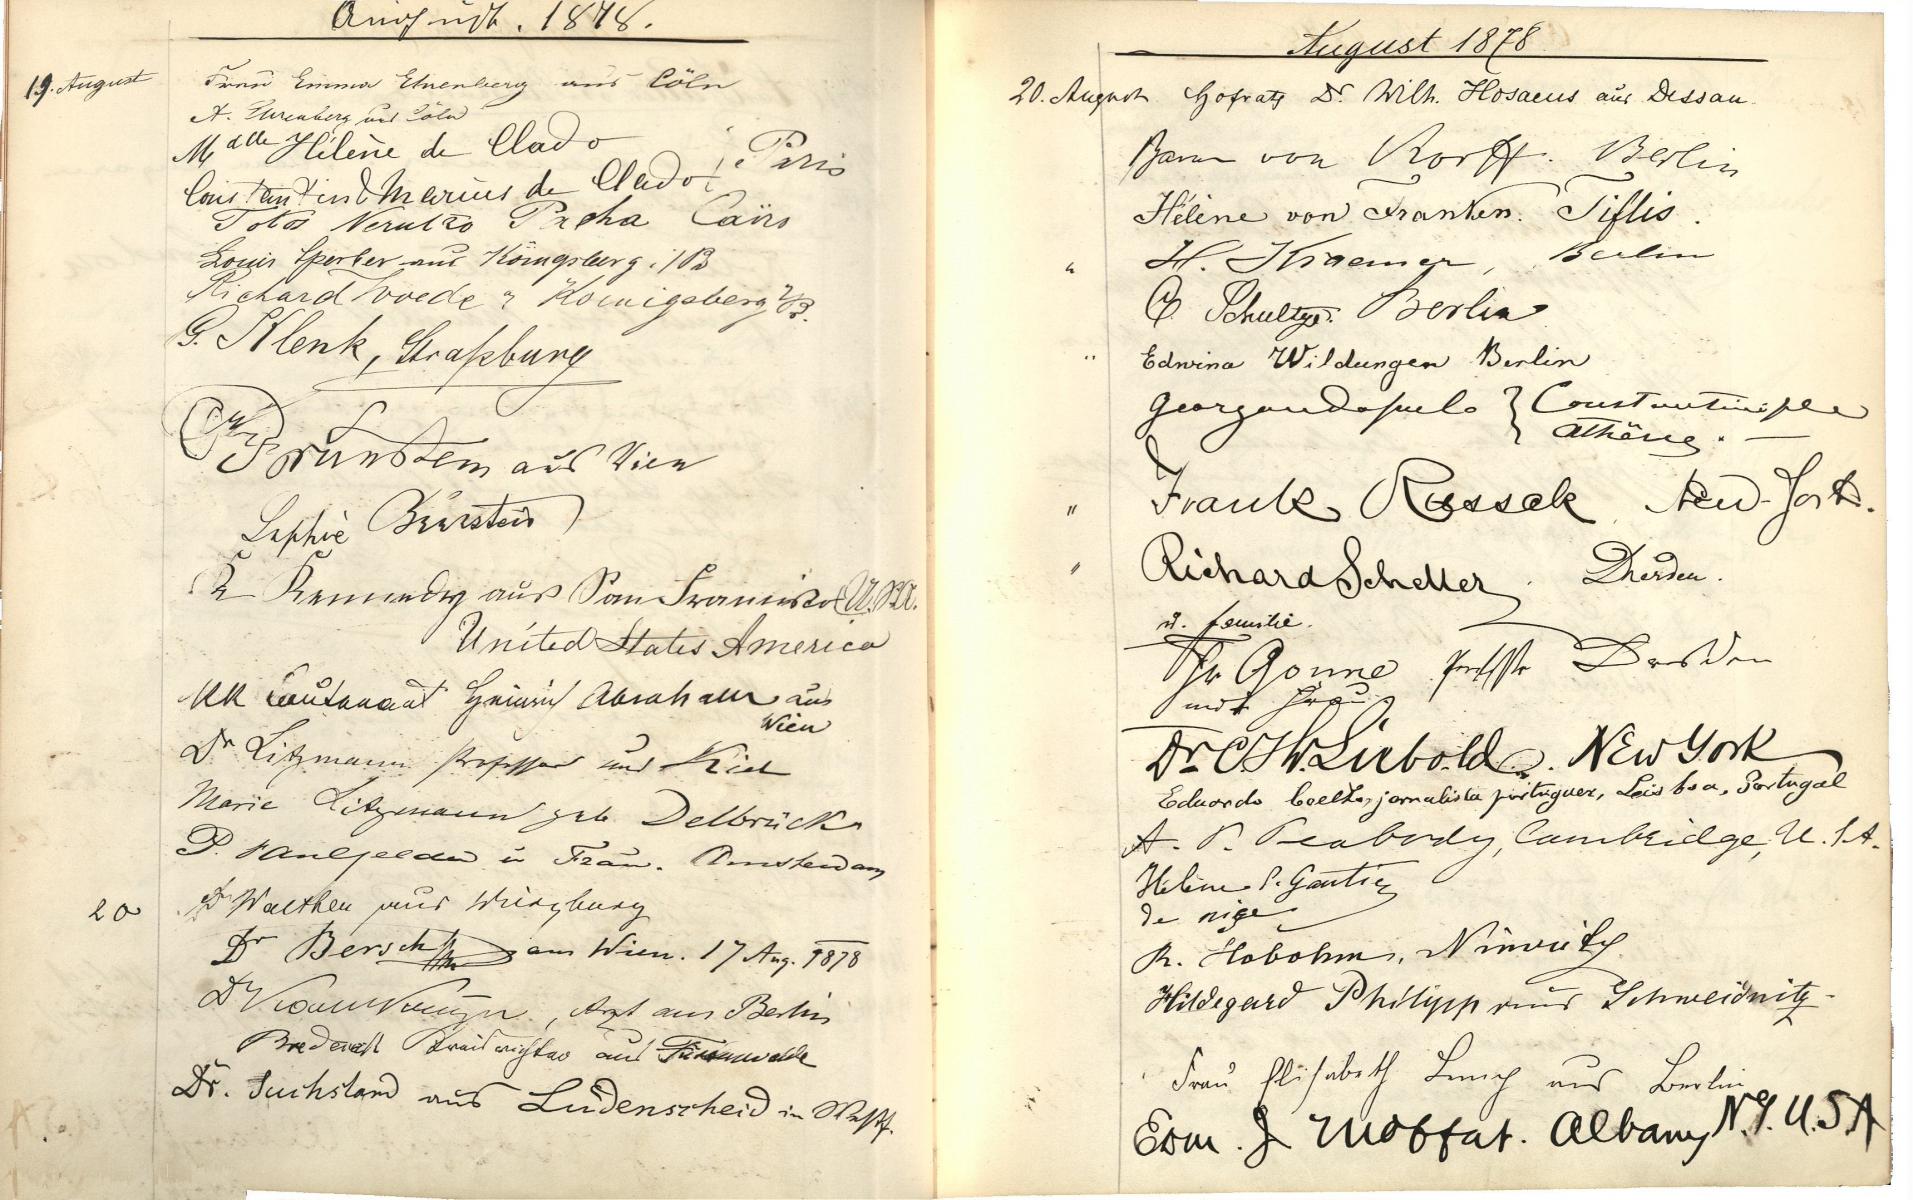 August. 1878.
19. August
Frau Emma Ehrenberg aus Cöln
A. Ehrenberg aus Cöln
Mdlle Hélène de Clado
Constantin & Marius de Clado
Paris
Pacha Caïro
Louis Sperber aus Königsberg i/B
Richard Königsberg
G. Klenk, Straßburg
aus Wien
Sophie
Kennedy aus San Francisco U.S.A.
United States America
KK Leutenant Heinrich Abraham aus
Wien
Dr Litzmann Professor aus Kiel
Marie Litzmann geb. Delbrück
P. u Frau. Amsterdam
20
Dr Walther aus Würzburg
Dr Bersch aus Wien. 17 Aug. 1878
Dr Arzt aus Berlin
Kreisrichter aus Fürstenwalde
Dr. Suchsland aus Lüdenscheid in Westf.
August 1878
20. August Hofrath Dr. Wilh. Hosaeus aus Dessau.
Baron von Korff. Berlin
Hélène von Franken. Tiflis.
" H. Kraemer, Berlin
Schultze. Berlin
" Edwina Wildungen Berlin
Georgandopulo } Constantinople
Athène. —
" Frank Rossek New-York.
" Richard Scheller. Dresden.
u. familie.
Fr Gonne Dresden
mit Frau
Dr. C. Th. Liebold. New York
Eduardo Coelho, jornalista portuguez, Lisboa, Portugal
A. P. Peabody, Cambridge, U.S.A.
Hélène P. Gautier
de nige
R. Hobohm,
Hildegard Philipp aus Schweidnitz
Frau Elisabeth aus Berlin
Edm. J. Moffat. Albany N.Y. U.S.A